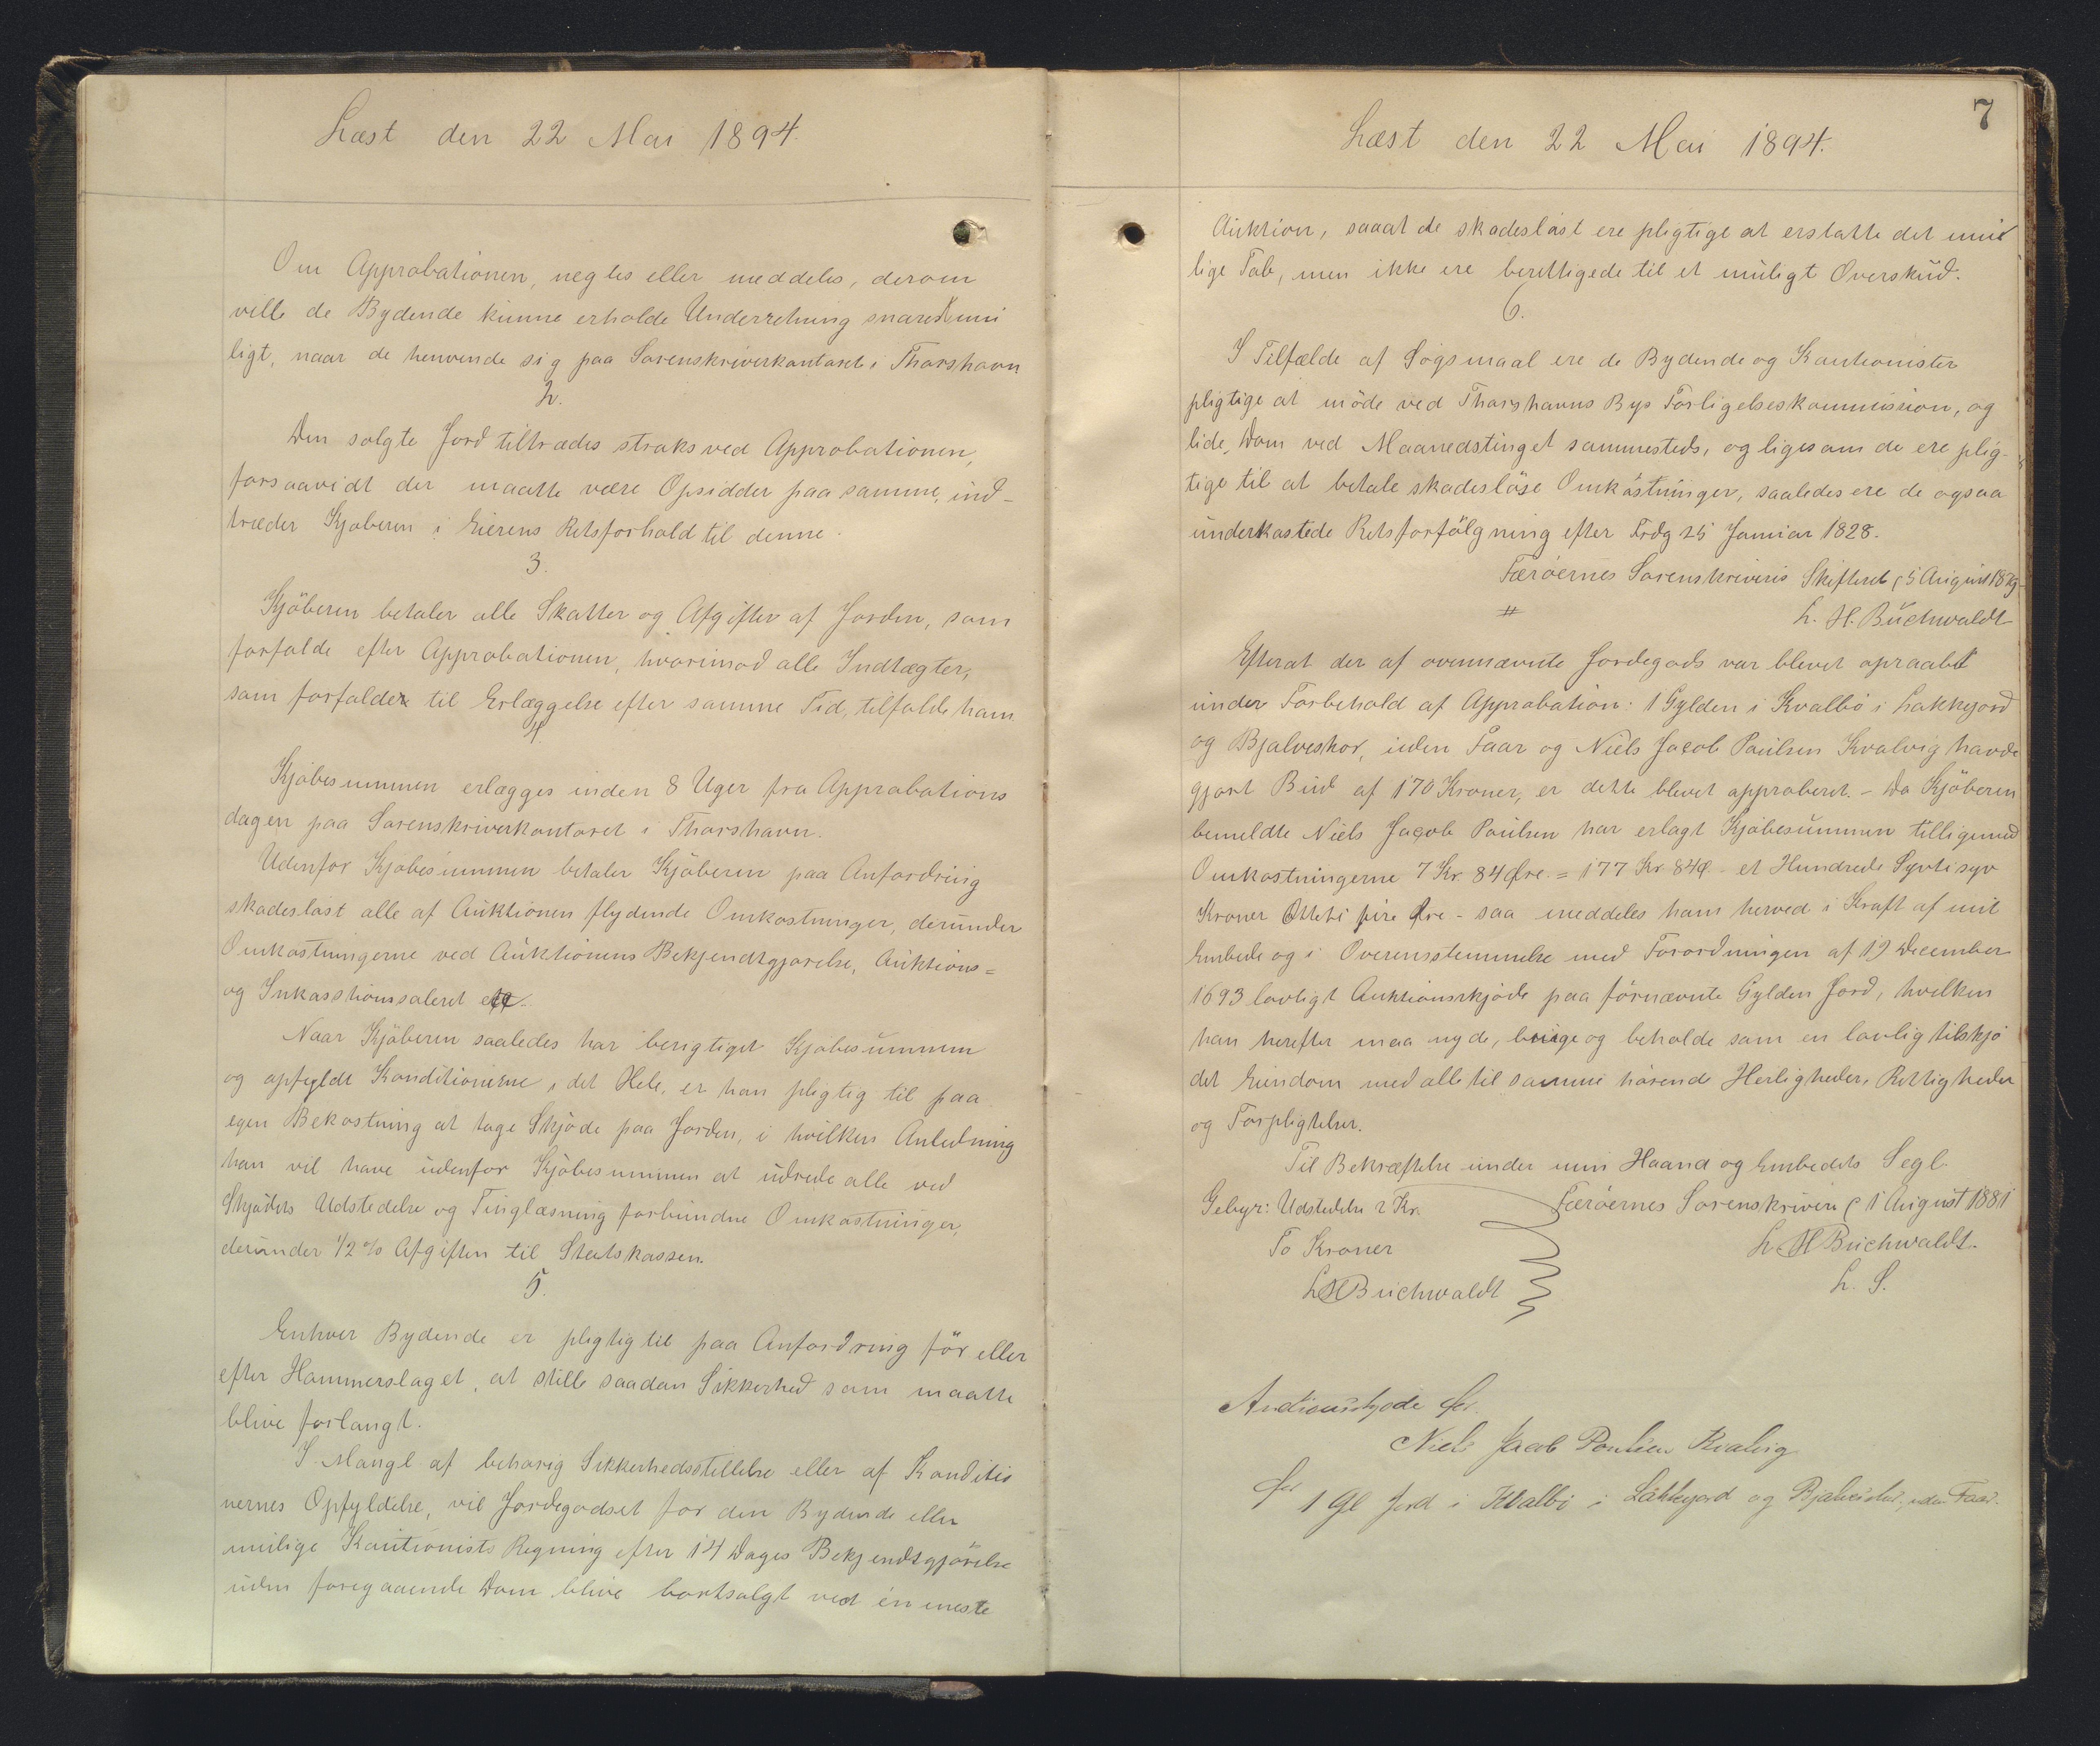 Læst den 22 Mai 1894.
Om Approbationen, negtes eller meddeles, derom
ville de Bydende kunne erholde Underretning snarest mu
ligt, naar de henvende sig paa Sorenskriverkontoret i Thorshavn
2.
Den solgte Jord tiltrædes straks ved Approbationen,
forsaavidt der maatte være Opsidder paa samme, ind-
træder Kjøberen i Eierens Retsforhold til denne.
3.
Kjöberen betaler alle Skatter og Afgifter af Jorden, som
forfalde efter Approbationen, hvorimod alle Indtægter,
som forfalder til Erlæggelse efter samme Tid, tilfalde ham
4.
Kjøbesummen erlægges inden 8 Uger fra Approbations
dagen paa Sorenskriverkontoret i Thorshavn.
Udenfor Kjøbesummen betaler Kjöberen paa Anfordring
skadesløst alle af Auktionen flydende Omkostninger, derunder
Omkostningerne ved Auktionens Bekjendtgjørelse, Auktions=
og Inkasstionssaleret etc.
Naar Kjöberen saaledes har berigtiget Kjøbesummen
og opfyldt Konditionerne i det Hele, er han pligtig til paa
egen Bekostning at tage Skjøde paa Jorden, i hvilken Anledning
han vil have udenfor Kjøbesummen at udrede alle ved
Skjødets Udstedelse og Tinglæsning forbundne Omkostninger,
derunder 1/2 % Afgiften til Statskassen.
5.
Enhver Bydende er pligtig til paa Anfordring för eller
efter Hammerslaget, at stille saadan Sikkerhed som maatte
blive forlangt.
I Mangl af behørig Sikkerhedsstillelse eller af Konditio
nernes Opfyldelse, vil Jordegodset for den Bydende eller
mulige Kautionists Regning efter 14 Dages Bekjendtgjörelse
uden foregaaende Dom blive bortsolgt ved én eneste
7
Læst den 22 Mai 1894.
Auktion, saaat de skadesløst ere pligtige at erstatte det mu
lige Tab, men ikke ere berettigede til et muligt Overskud.
6.
I Tilfælde af Søgsmaal ere de Bydende og Kautionister
pligtige at möde ved Thorshavns Bys Forligelseskommission, og
lide Dom ved Maanedstinget sammesteds, og ligesom de ere plig-
tige til at betale skadesløse Omkostninger, saaledes ere de ogsaa
underkastede Retsforfölgning efter Frdg 25 Januar 1828.
Færöernes Sorenskriveri Skifteret 5 August 1879
L. H. Buchwaldt
Efterat der af ovennævnte Jordegods var blevet opraabt
under Forbehold af Approbation: 1 Gylden i Kvalbö i Lakkegord
og Bjalveskor, uden Faar og Niels Jacob Poulsen Kvalvig havde
gjort Bud af 170 Kroner, er dette blevet approberet. - Da Kjöberen
bemeldte Niels Jacob Poulsen har erlagt Kjøbesummen tilligemed
Omkostningerne 7 Kr. 84 Øre. = 177 Kr 84 Ø - et Hundrede Syvti syv
Kroner Otteti fire Øre - saa meddeles ham herved i Kraft af mit
Embede og i Overensstemmelse med Forordningen af 19 December
1693 lovligt Auktionsskjøde paa förnævnte Gylden Jord, hvilken
han herefter maa nyde, bruge og beholde som en lovlig tilskjö
det Eiendom med alle til samme hörende Herligheder, Rettigheder
og Forpligtelser.
Til Bekræftelse under min Haand og Embedets Segl.
Færöernes Sorenskriveri 1 August 1881
L H Buchwaldt.
L. S.
Gebyr: Udstedelse 2 Kr.
To Kroner
LHBuchwaldt
Auctionsskjøde for
Niels Jacob Poulsen Kvalvig
for 1 Gl Jord i Kvalbö i Lakkegord og Bjalveskor, uden Faar.